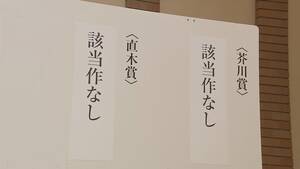 〈芥川賞〉
該当作なし
〈直木賞〉
該当作なし